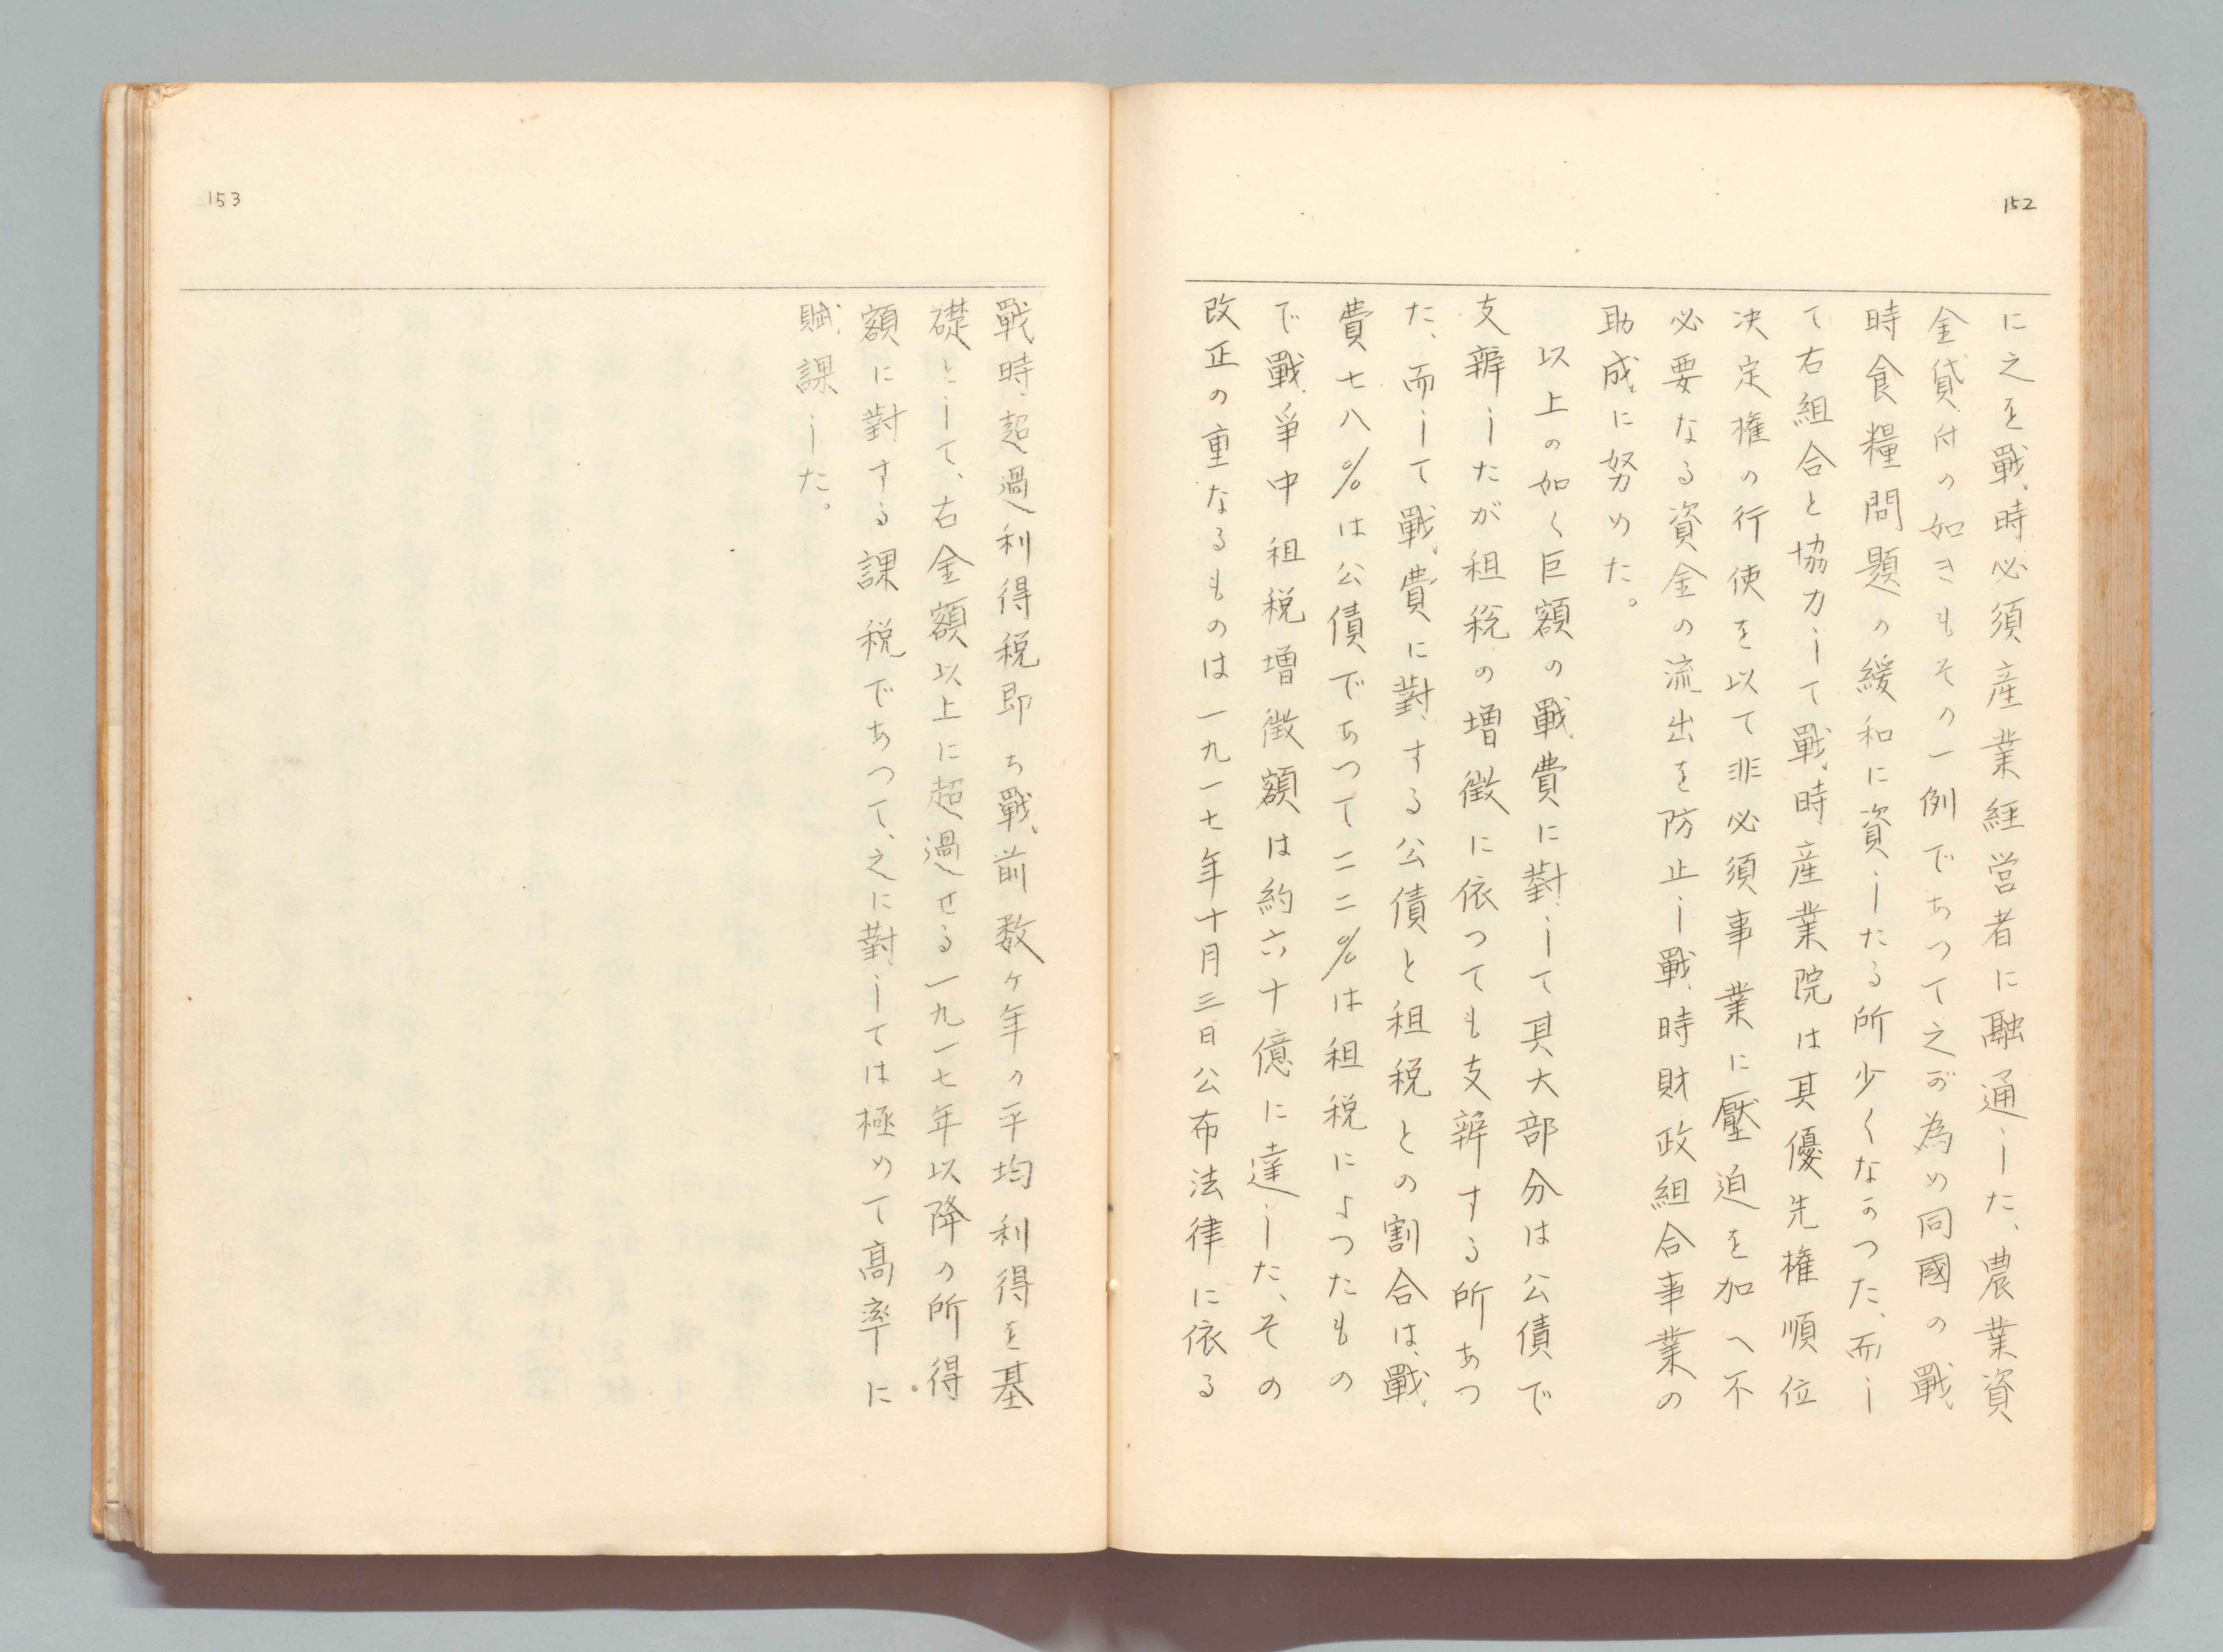 152
に之を戰時必須産業経営者に融通した、農業資
金貸付の如きもその一例でちつて之が為め同國の戰
時食糧問題の緩和に資したる所少くなかつた、而し
て右組合と協力して戰時産業院は其優先権順位
决定権の行使を以て非必須事業に壓迫を加へ不
必要なる資金の流出を防止し戰時財政組合事業の
助成に努めた。
以上の如く巨額の戰費に對して其大部分は公債で
支辨したが租税の増徴に依つても支辨する所あつ
た、而して戰費に對する公債と租税との割合は、戰
費七八%は公債であつて二二%は租税によつたもの
で戰爭中租税増徴額は約六十億に達した、その
改正の重なるものは一九一七年十月三日公布法律に依る
153
戰時超過利得税即ち戰前数ヶ年の平均利得を基
礎として、右金額以上に超過せる一九一七年以降の所得
額に對する課税であつて、之に對しては極めて高率に
賦課した。